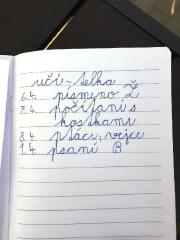 učí-telka
6.4. písmeno Ž
7.4. počítání s
kostkami
8.4 ptáci, vejce
9.4. psaní B